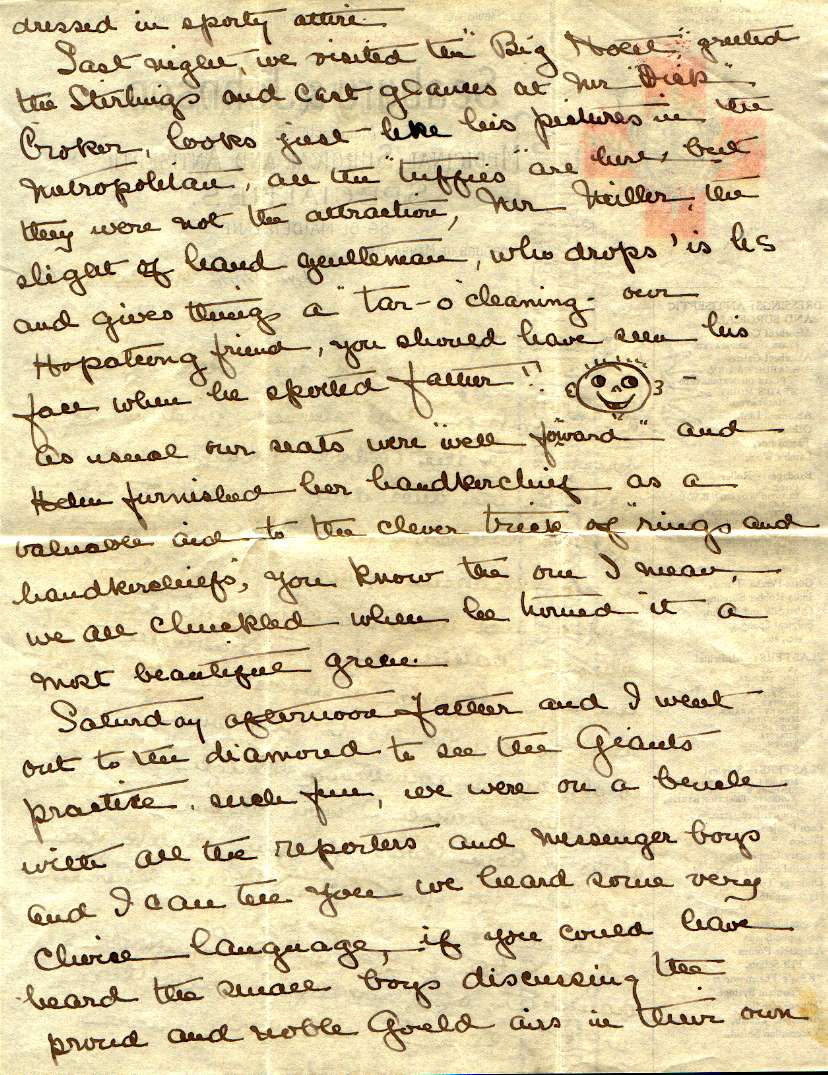 dressed in sporty attire.
Last night, we visited the "Big Hotel," greeted
the Sterlings and cast glances at Mr "Dick"
Croker, looks just like his pictures in the
Metropolitan, all the "tuffies" are here, but
they were not the attraction, Mr Miller, the
slight of hand gentleman, who drops 'is hs
and gives things a "tar-o" cleaning - our
Hopatcong friend, you should have seen his
face when he spotted father!! -
As usual our seats were "well forward" and
Helen furnished her handkerchief as a
valuable aid to the clever trick of "rings and
handkerchiefs", you know the one I mean,
we all chuckled when he turned it a
most beautiful green.
Saturday afternoon father and I went
out to the diamond to see the Giants
practice, such fun, we were on a bench
with all the reporters and messenger boys
and I can tell you we heard some very
choice language, if you could have
heard the small boys discussing the
proud and noble Gould airs in their own